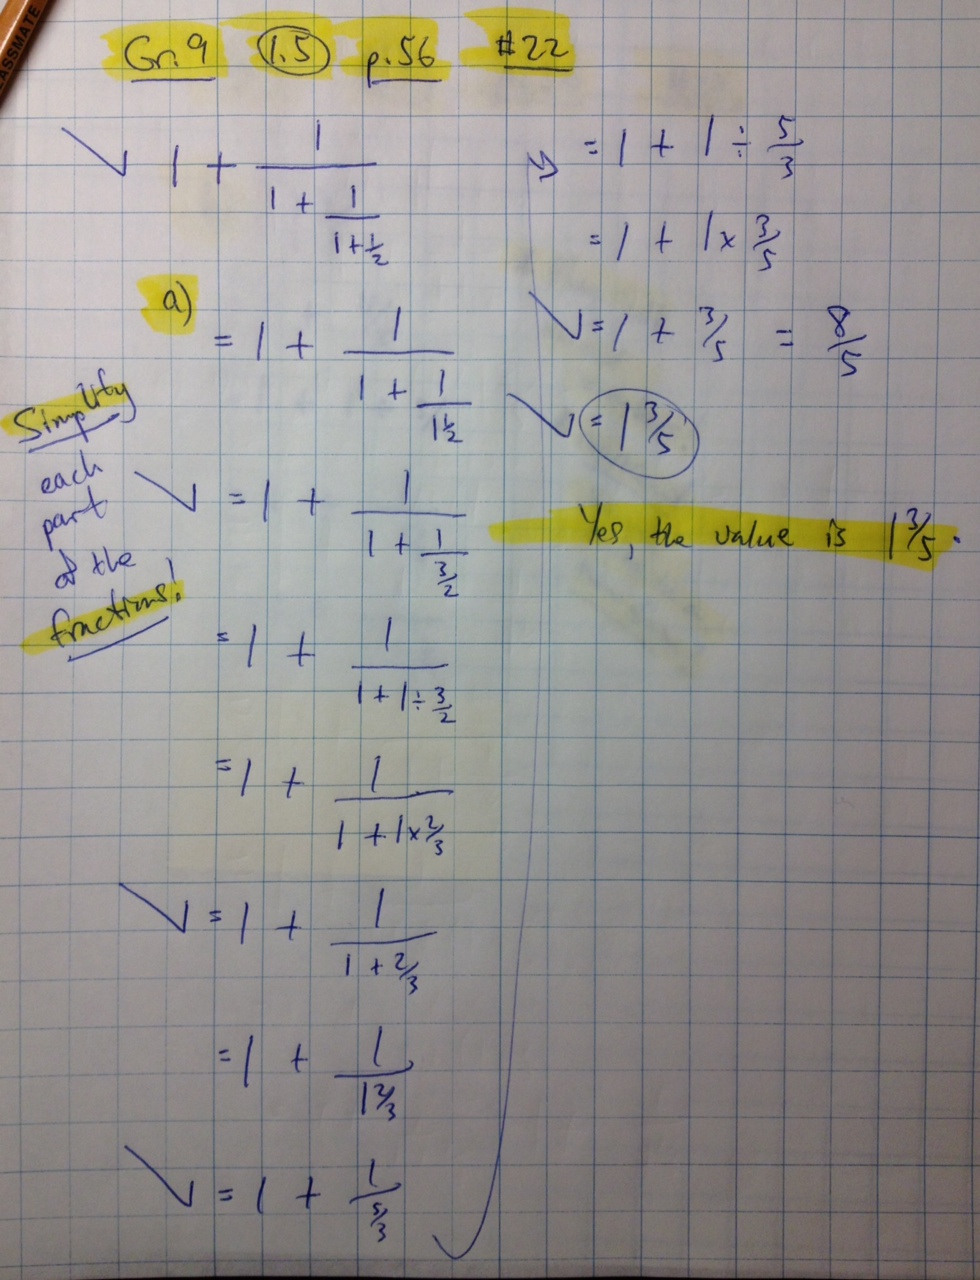 CLASSMATE
Gr. 9 1.5 p.56 #22
1 + 1/(1 + 1/(1 + 1/2))
a)
= 1 + 1/(1 + 1/(1 1/2))
Simplify
each
part
of the
fractions!
= 1 + 1/(1 + 1/(3/2))
= 1 + 1/(1 + 1 ÷ 3/2)
= 1 + 1/(1 + 1 × 2/3)
= 1 + 1/(1 + 2/3)
= 1 + 1/(1 2/3)
= 1 + 1/(5/3)
= 1 + 1 ÷ 5/3
= 1 + 1 × 3/5
= 1 + 3/5 = 8/5
= 1 3/5
Yes, the value is 1 3/5.